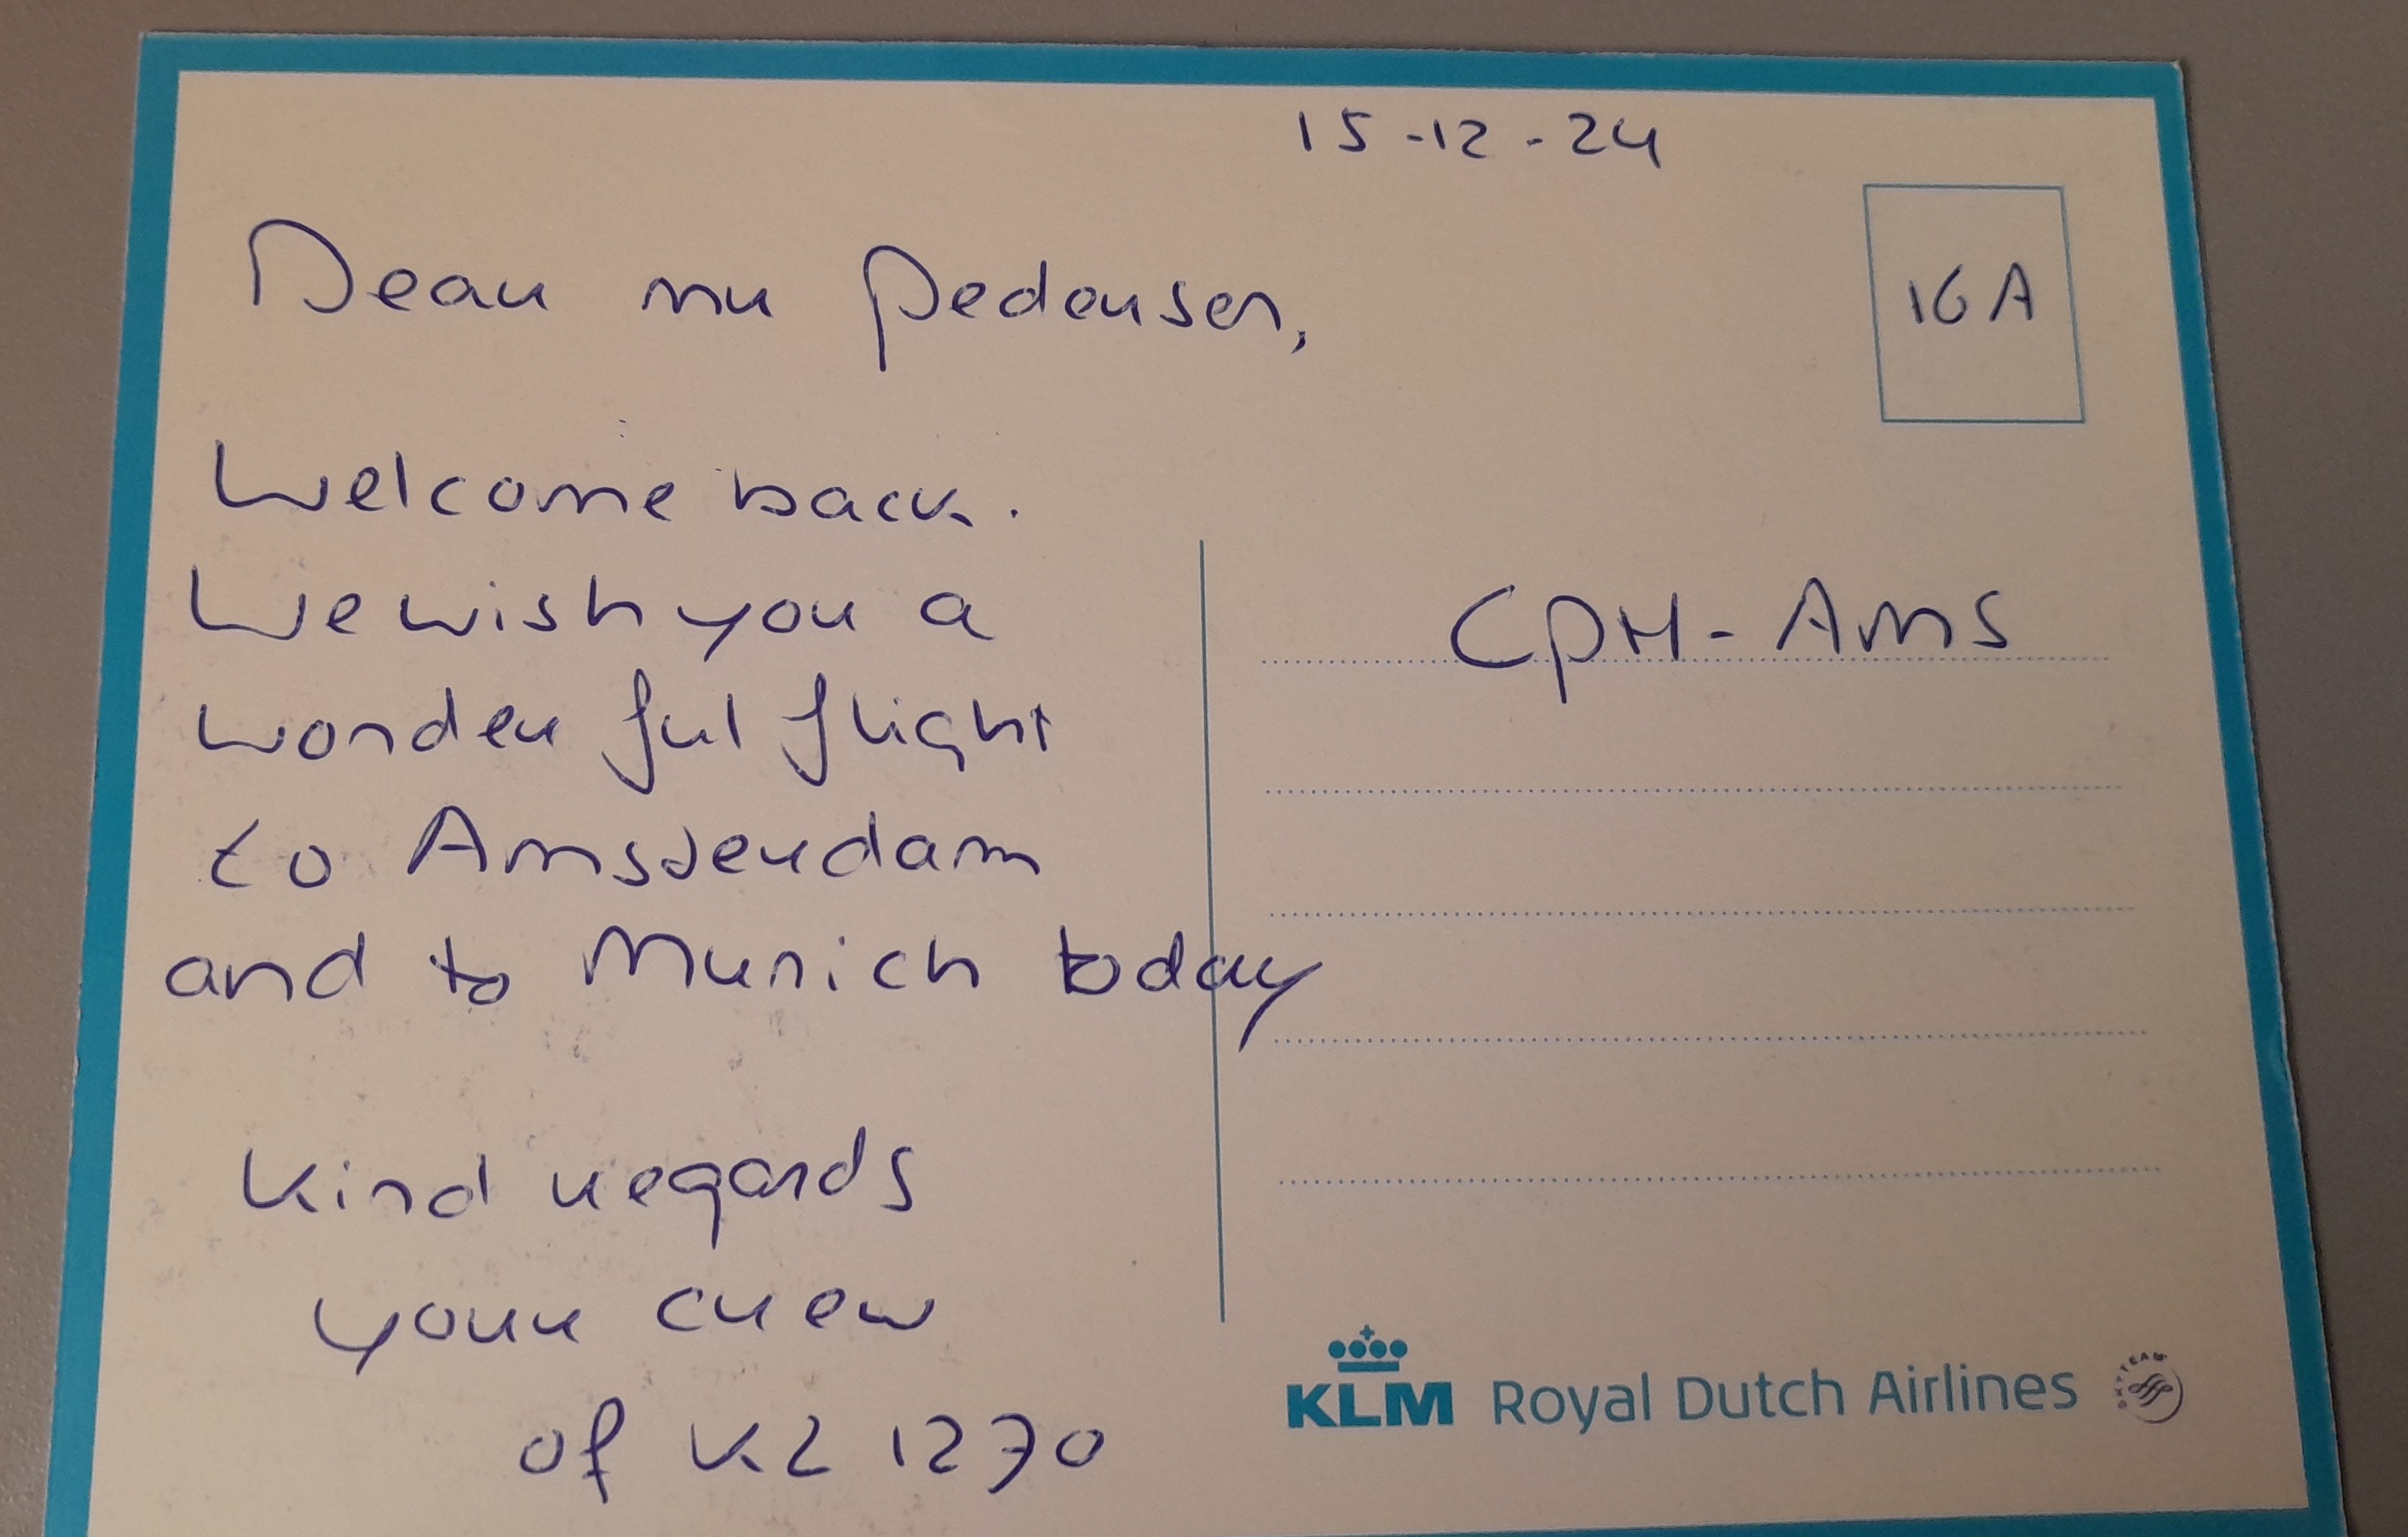 15-12-24
Dear mr Pedersen,
16A
Welcome back.
We wish you a
wonderful flight
to Amsterdam
and to Munich today
Kind regards
your crew
of KL 1270
CPH-AMS
KLM Royal Dutch Airlines
SKYTEAM